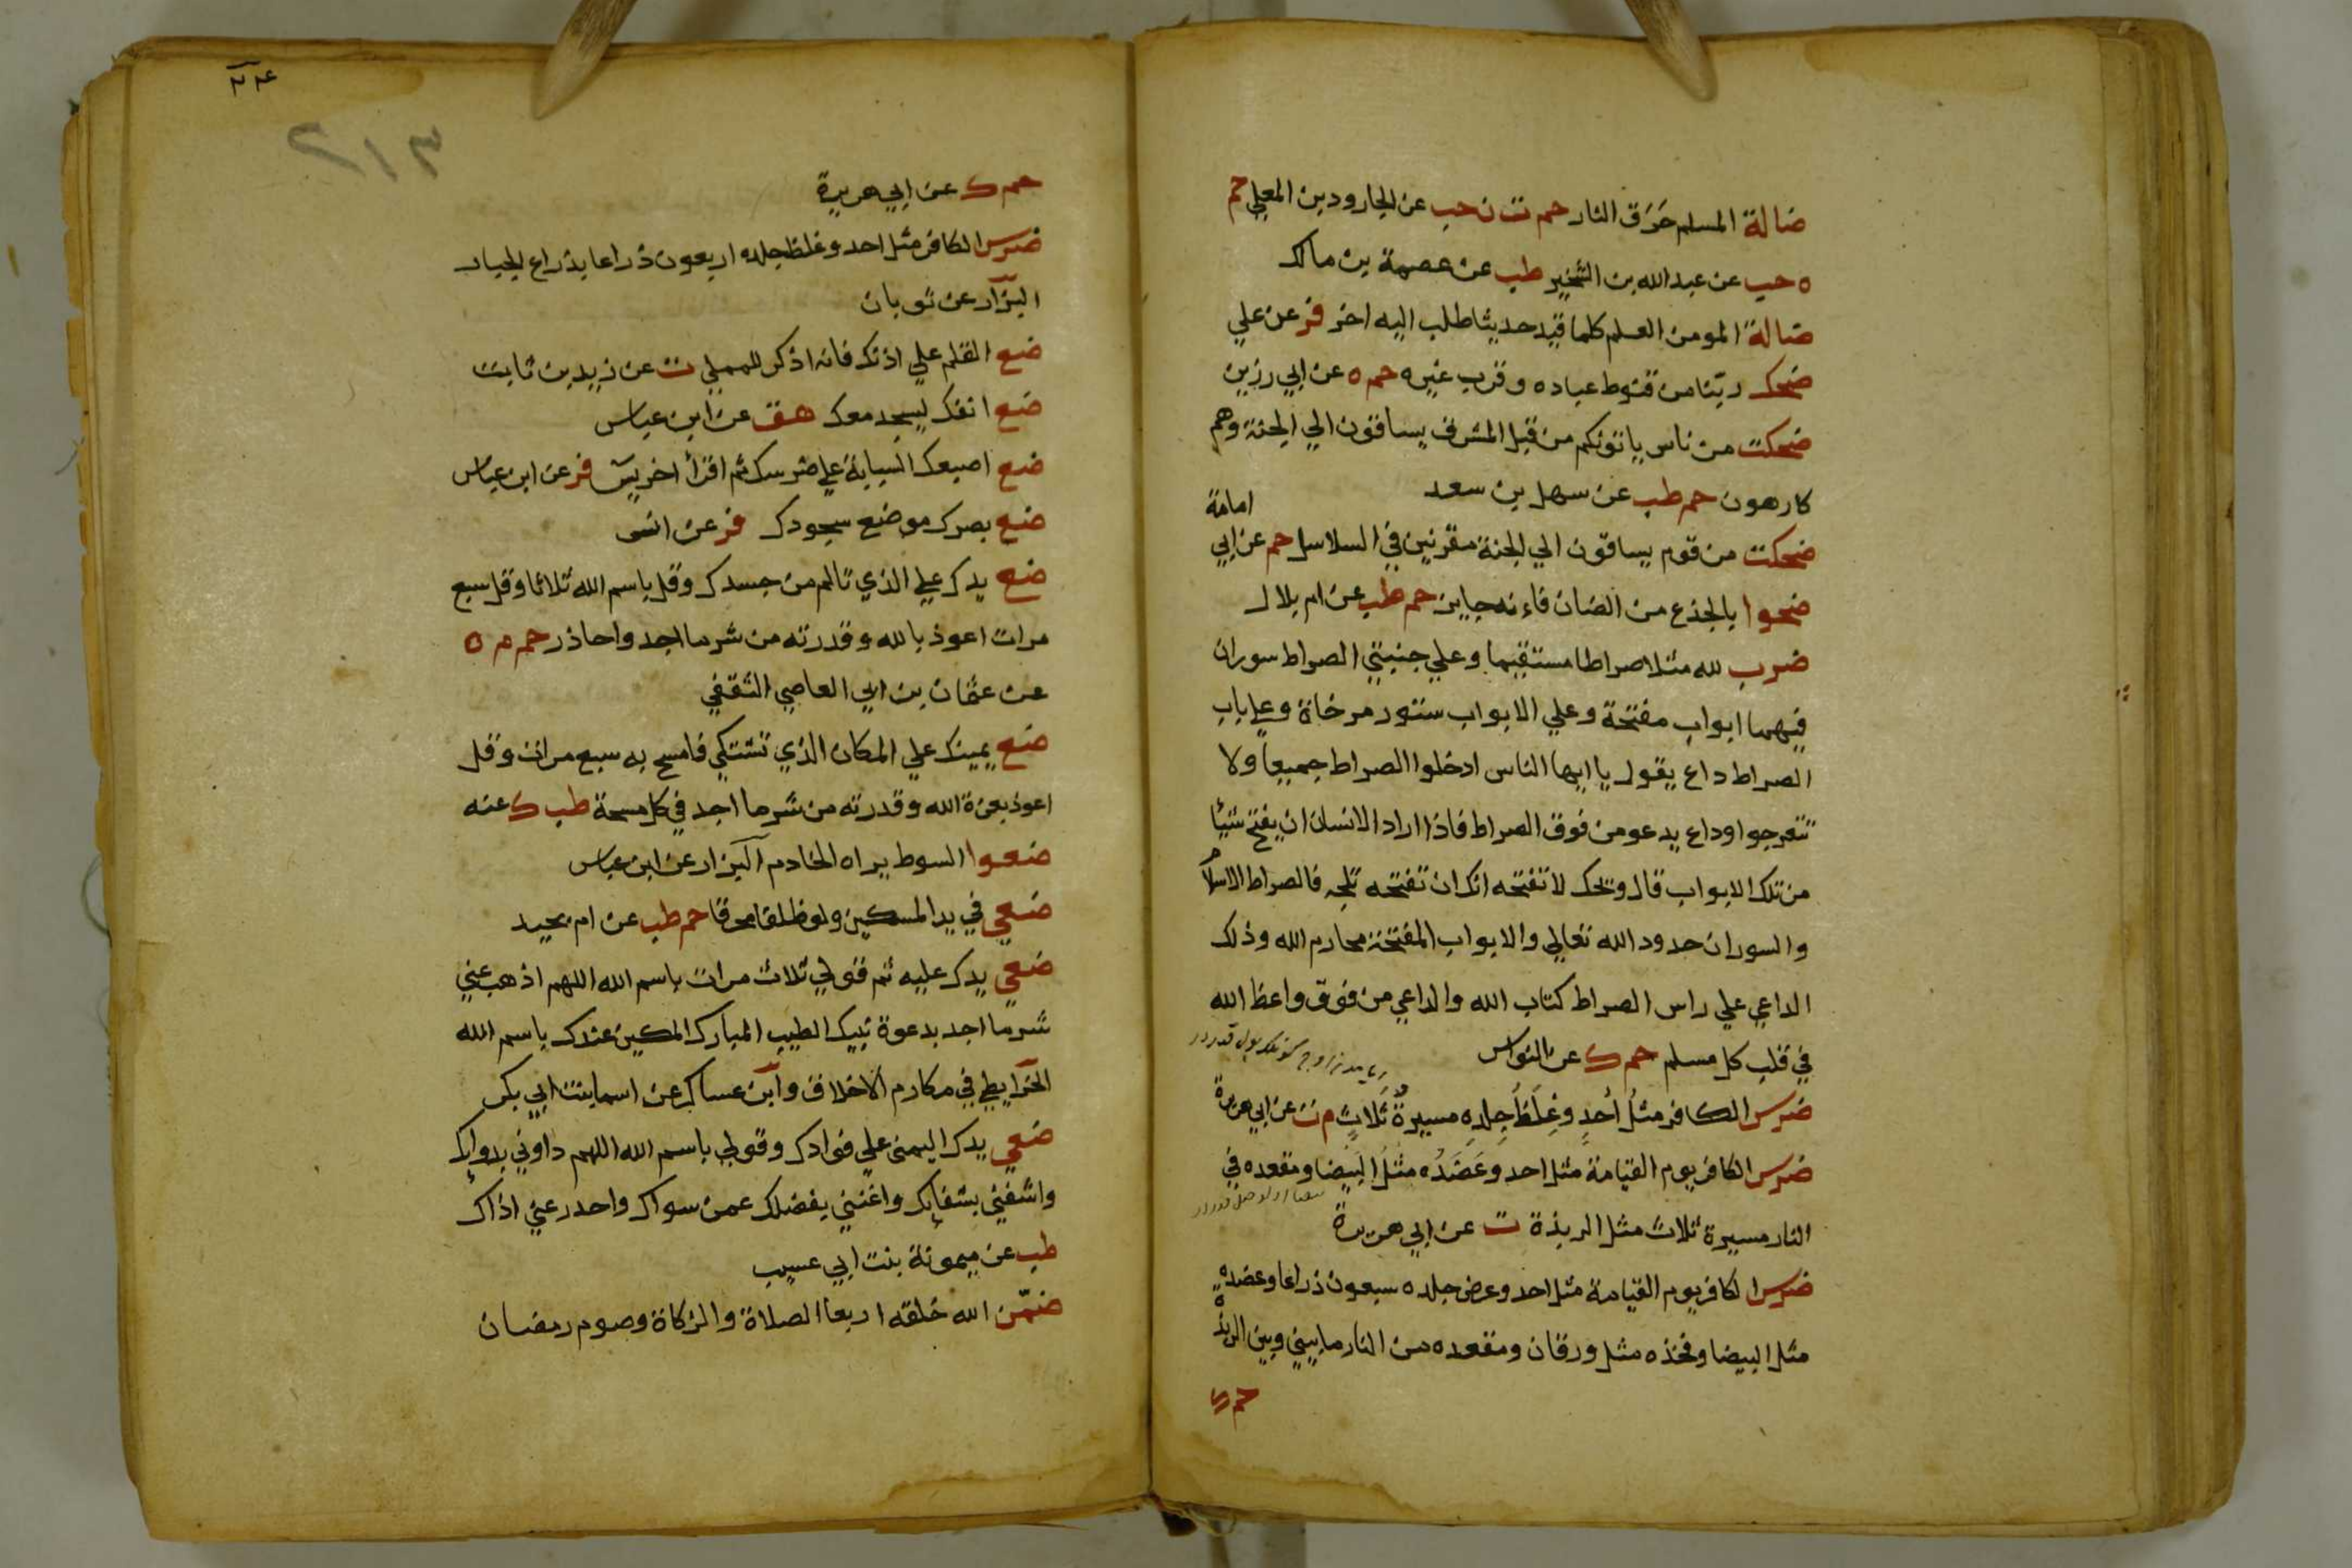 ضالة المسلم حَرَق النار حم ت ن حب عن الجارود بن المعلي حم
ه حب عن عبد الله بن الشخير طب عن عصمة بن مالك
ضالة المومن العلم كلما قيد حديثا طلب اليه اخر فر عن علي
ضحك ربنا من قنوط عباده وقرب غيره حم ه عن ابي رزين
ضحكت من ناس ياتونكم من قبل المشرق يساقون الي الجنة وهم
كارهون حم طب عن سهل بن سعد
امامة
ضحكت من قوم يساقون الي الجنة مقرنين في السلاسل حم عن ابي
ضحوا بالجذع من الضان فاءنه جايز حم طب عن ام بلال
ضرب لله مثلا صراطا مستقيما وعلي جنبتي الصراط سوران
فيهما ابواب مفتحة وعلي الابواب ستور مرخاة وعلي باب
الصراط داع يقول يا ايها الناس ادخلوا الصراط جميعا ولا
تتعرجوا وداع يدعو من فوق الصراط فاذا اراد الانسان ان يفتح شيئا
من تلك الابواب قال ويحك لا تفتحه انك ان تفتحه تلجه فالصراط الاسلام
والسوران حدود الله تعالي والابواب المفتحة محارم الله وذلك
الداعي علي راس الصراط كتاب الله والداعي من فوق واعظ الله
في قلب كل مسلم حم ك عن النواس
ضرس الكافر مثلُ أُحدٍ وغِلَظُ جِلدِه مسيرةُ ثَلاثٍ م ت عن ابي هريرة
ضرس الكافر يوم القيامة مثل احد وعَضَدُه مثلُ البَيضا ومقعده في
النار مسيرة ثلاث مثل الربذة ت عن ابي هريرة
ضرس الكافر يوم القيامة مثل احد وعرض جلده سبعون ذراعا وعضده
مثل البيضا وفخذه مثل ورقان ومقعده من النار ما بيني وبين الربذة
حم ك
٢١٣
حم ك عن ابي هريرة
ضرس الكافر مثل احد وغلظ جلده اربعون ذراعا بذراع الجبار
البزار عن ثوبان
ضع القلم علي اذنك فانه اذكر للمملي ت عن زيد بن ثابت
ضع انفك ليسجد معك هق عن ابن عباس
ضع اصبعك السبابة علي ضرسك ثم اقرأ اخر يس فر عن ابن عباس
ضع بصرك موضع سجودك فر عن انس
ضع يدك علي الذي تالم من جسدك وقل باسم الله ثلاثا وقل سبع
مرات اعوذ بالله وقدرته من شر ما اجد واحاذر حم م ه
عن عثمان بن ابي العاصي الثقفي
ضع يمينك علي المكان الذي تشتكي فامسح به سبع مرات وقل
اعوذ بعزة الله وقدرته من شر ما اجد في كل مسحة طب ك عنه
ضعوا السوط يراه الخادم البزار عن ابن عباس
ضعي في يد المسكين ولو ظلفا محرقا حم طب عن ام بجيد
ضعي يدك عليه ثم قولي ثلاث مرات باسم الله اللهم اذهب عني
شر ما اجد بدعوة نبيك الطيب المبارك المكين عندك باسم الله
الخرايطي في مكارم الاخلاق وابن عساكر عن اسما بنت ابي بكر
ضعي يدك اليمنى علي فوادك وقولي باسم الله اللهم داوني بدوايك
واشفني بشفايك واغنني بفضلك عمن سواك واحدر عني اذاك
طب عن ميمونة بنت ابي عسيب
ضمّن الله خلقه اربعا الصلاة والزكاة وصوم رمضان